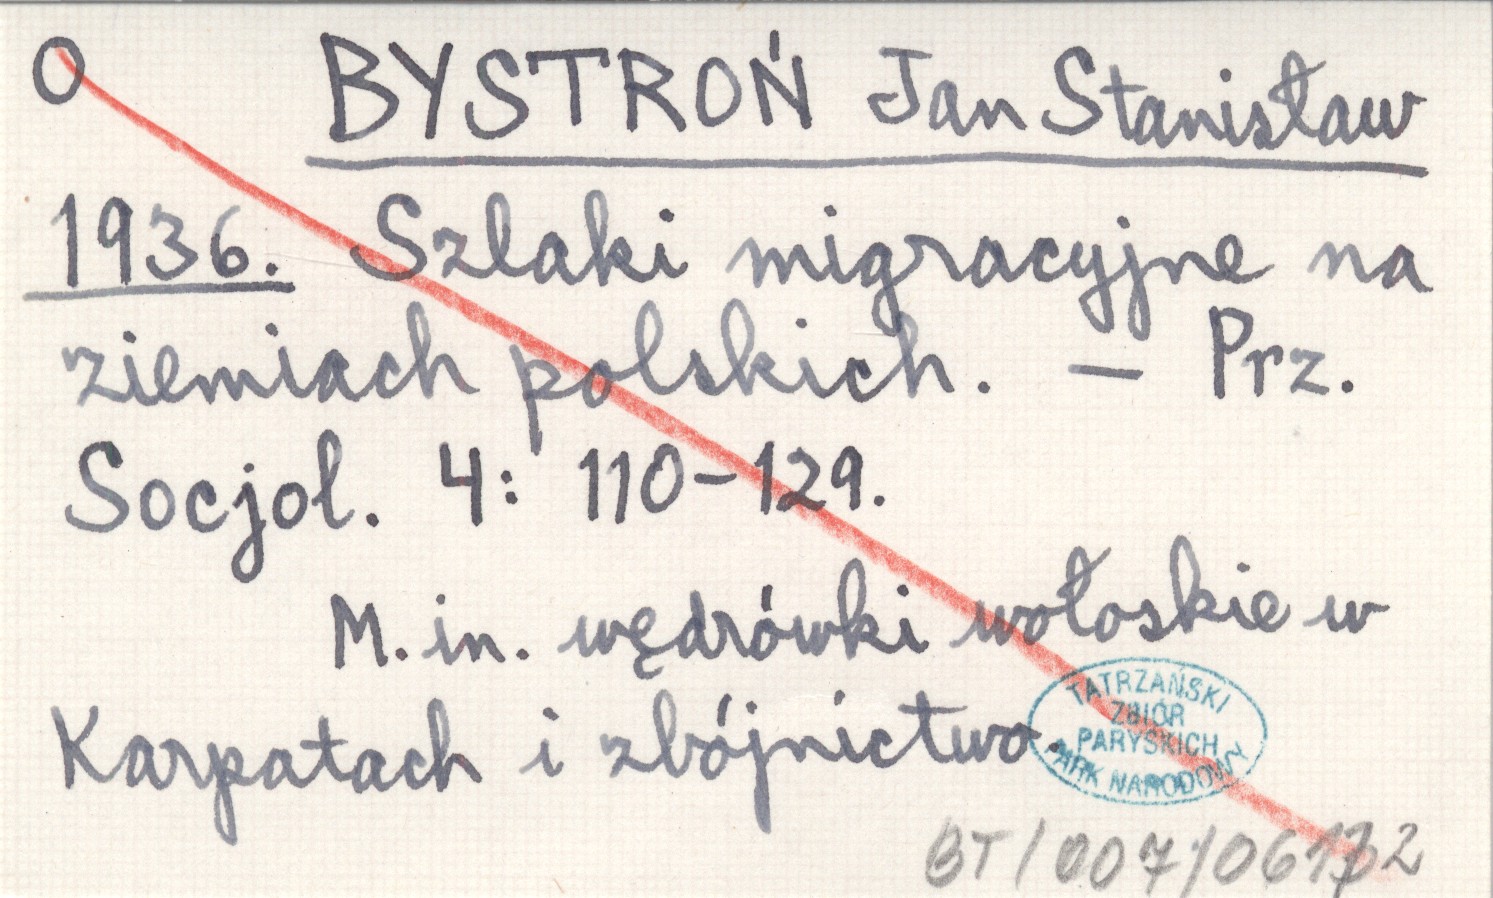 O BYSTROŃ Jan Stanisław
1936. Szlaki migracyjne na
ziemiach polskich. – Prz.
Socjol. 4: 110–129.
M. in. wędrówki wołoskie w
Karpatach i zbójnictwo.
TATRZAŃSKI
ZBIÓR
PARYSKICH
PARK NARODOWY
BT/007/06172